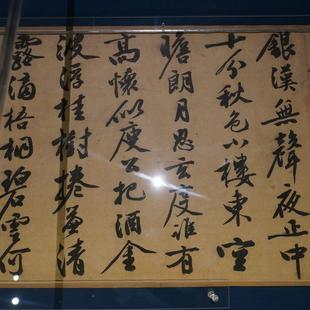 銀漢無聲夜正中
十分秋色小樓東空
瞻朗月思玄度誰有
高懷似庾公把酒金
波浮桂樹捲簾清
露滴梧桐碧雲何